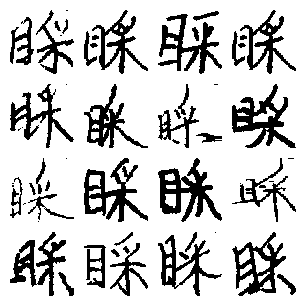 睬睬睬睬
睬睬睬睬
睬睬睬睬
睬睬睬睬